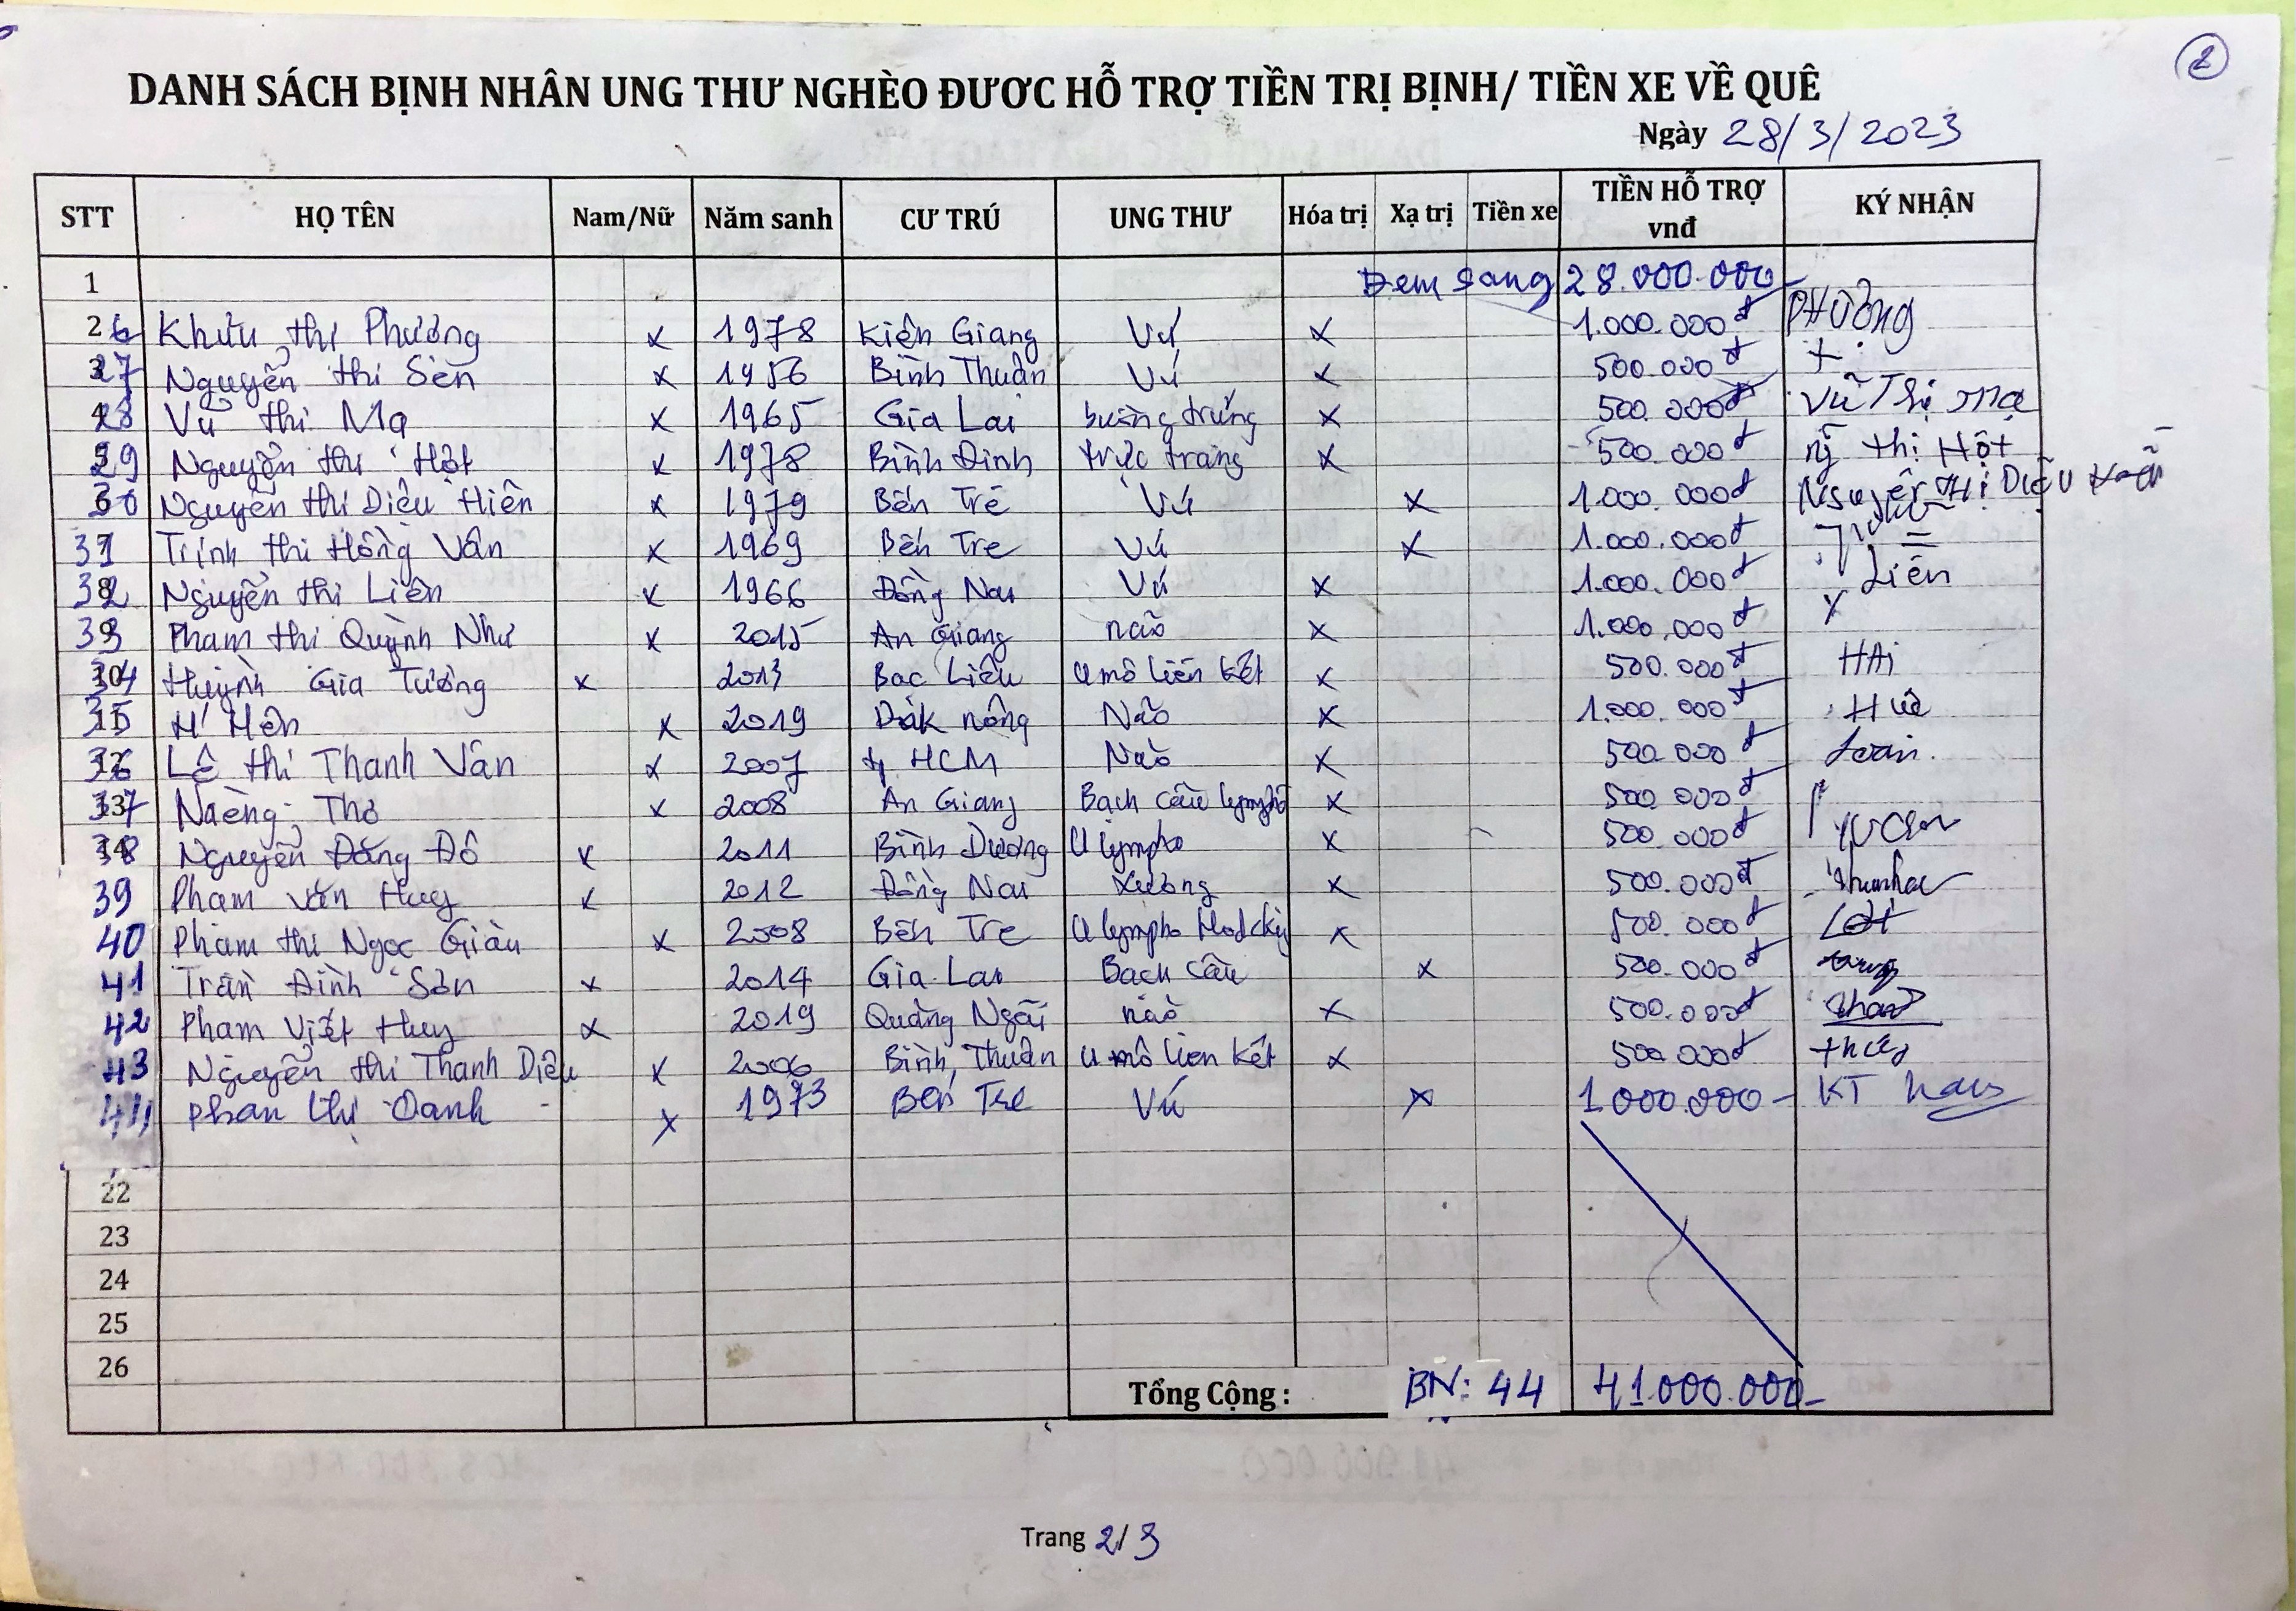 2
DANH SÁCH BỊNH NHÂN UNG THƯ NGHÈO ĐƯƠC HỖ TRỢ TIỀN TRỊ BỊNH/ TIỀN XE VỀ QUÊ
Ngày 28/3/2023
STT HỌ TÊN Nam/Nữ Năm sanh CƯ TRÚ UNG THƯ Hóa trị Xạ trị Tiền xe TIỀN HỖ TRỢ vnđ KÝ NHẬN
1 Đem sang 28.000.000
26 Khưu thị Phương x 1978 Kiên Giang Vú x 1.000.000đ Phượng
27 Nguyễn thị Sên x 1956 Bình Thuận Vú x 500.000đ +
28 Vũ thị Mạ x 1965 Gia Lai buồng trứng x 500.000đ Vũ Thị Mạ
29 Nguyễn thị Hột x 1978 Bình Định trực tràng x 500.000đ ng thị Hột
30 Nguyễn thị Diệu Hiền x 1979 Bến Tre Vú x 1.000.000đ Nguyễn Thị Diệu
31 Trịnh thị Hồng Vân x 1969 Bến Tre Vú x 1.000.000đ
32 Nguyễn thị Liên x 1966 Đồng Nai Vú x 1.000.000đ Liên
33 Phạm thị Quỳnh Như x 2015 An Giang não x 1.000.000đ x
34 Huỳnh Gia Tường x 2013 Bạc Liêu U mô liên kết x 500.000đ HẢi
35 H' Hên x 2019 Đắk nông Não x 1.000.000đ Huê
36 Lê thị Thanh Vân x 2007 tp HCM Não x 500.000đ Loan.
37 Naèng Thơ x 2008 An Giang Bạch cầu lympho x 500.000đ
38 Nguyễn Đăng Đô x 2011 Bình Dương U lympho x 500.000đ
39 Phạm văn Huy x 2012 Đồng Nai Xương x 500.000đ
40 Phạm thị Ngọc Giàu x 2008 Bến Tre U lympho Hodckin x 500.000đ
41 Trần Đình Sơn x 2014 Gia Lai Bạch cầu x 500.000đ
42 Phạm Viết Huy x 2019 Quảng Ngãi não x 500.000đ
43 Nguyễn thị Thanh Diệu x 2006 Bình Thuận U mô liên kết x 500.000đ
44 Phan thị Oanh x 1973 Bến Tre Vú x 1.000.000- KT
22
23
24
25
26
Tổng Cộng : BN: 44 41.000.000-
Trang 2/3